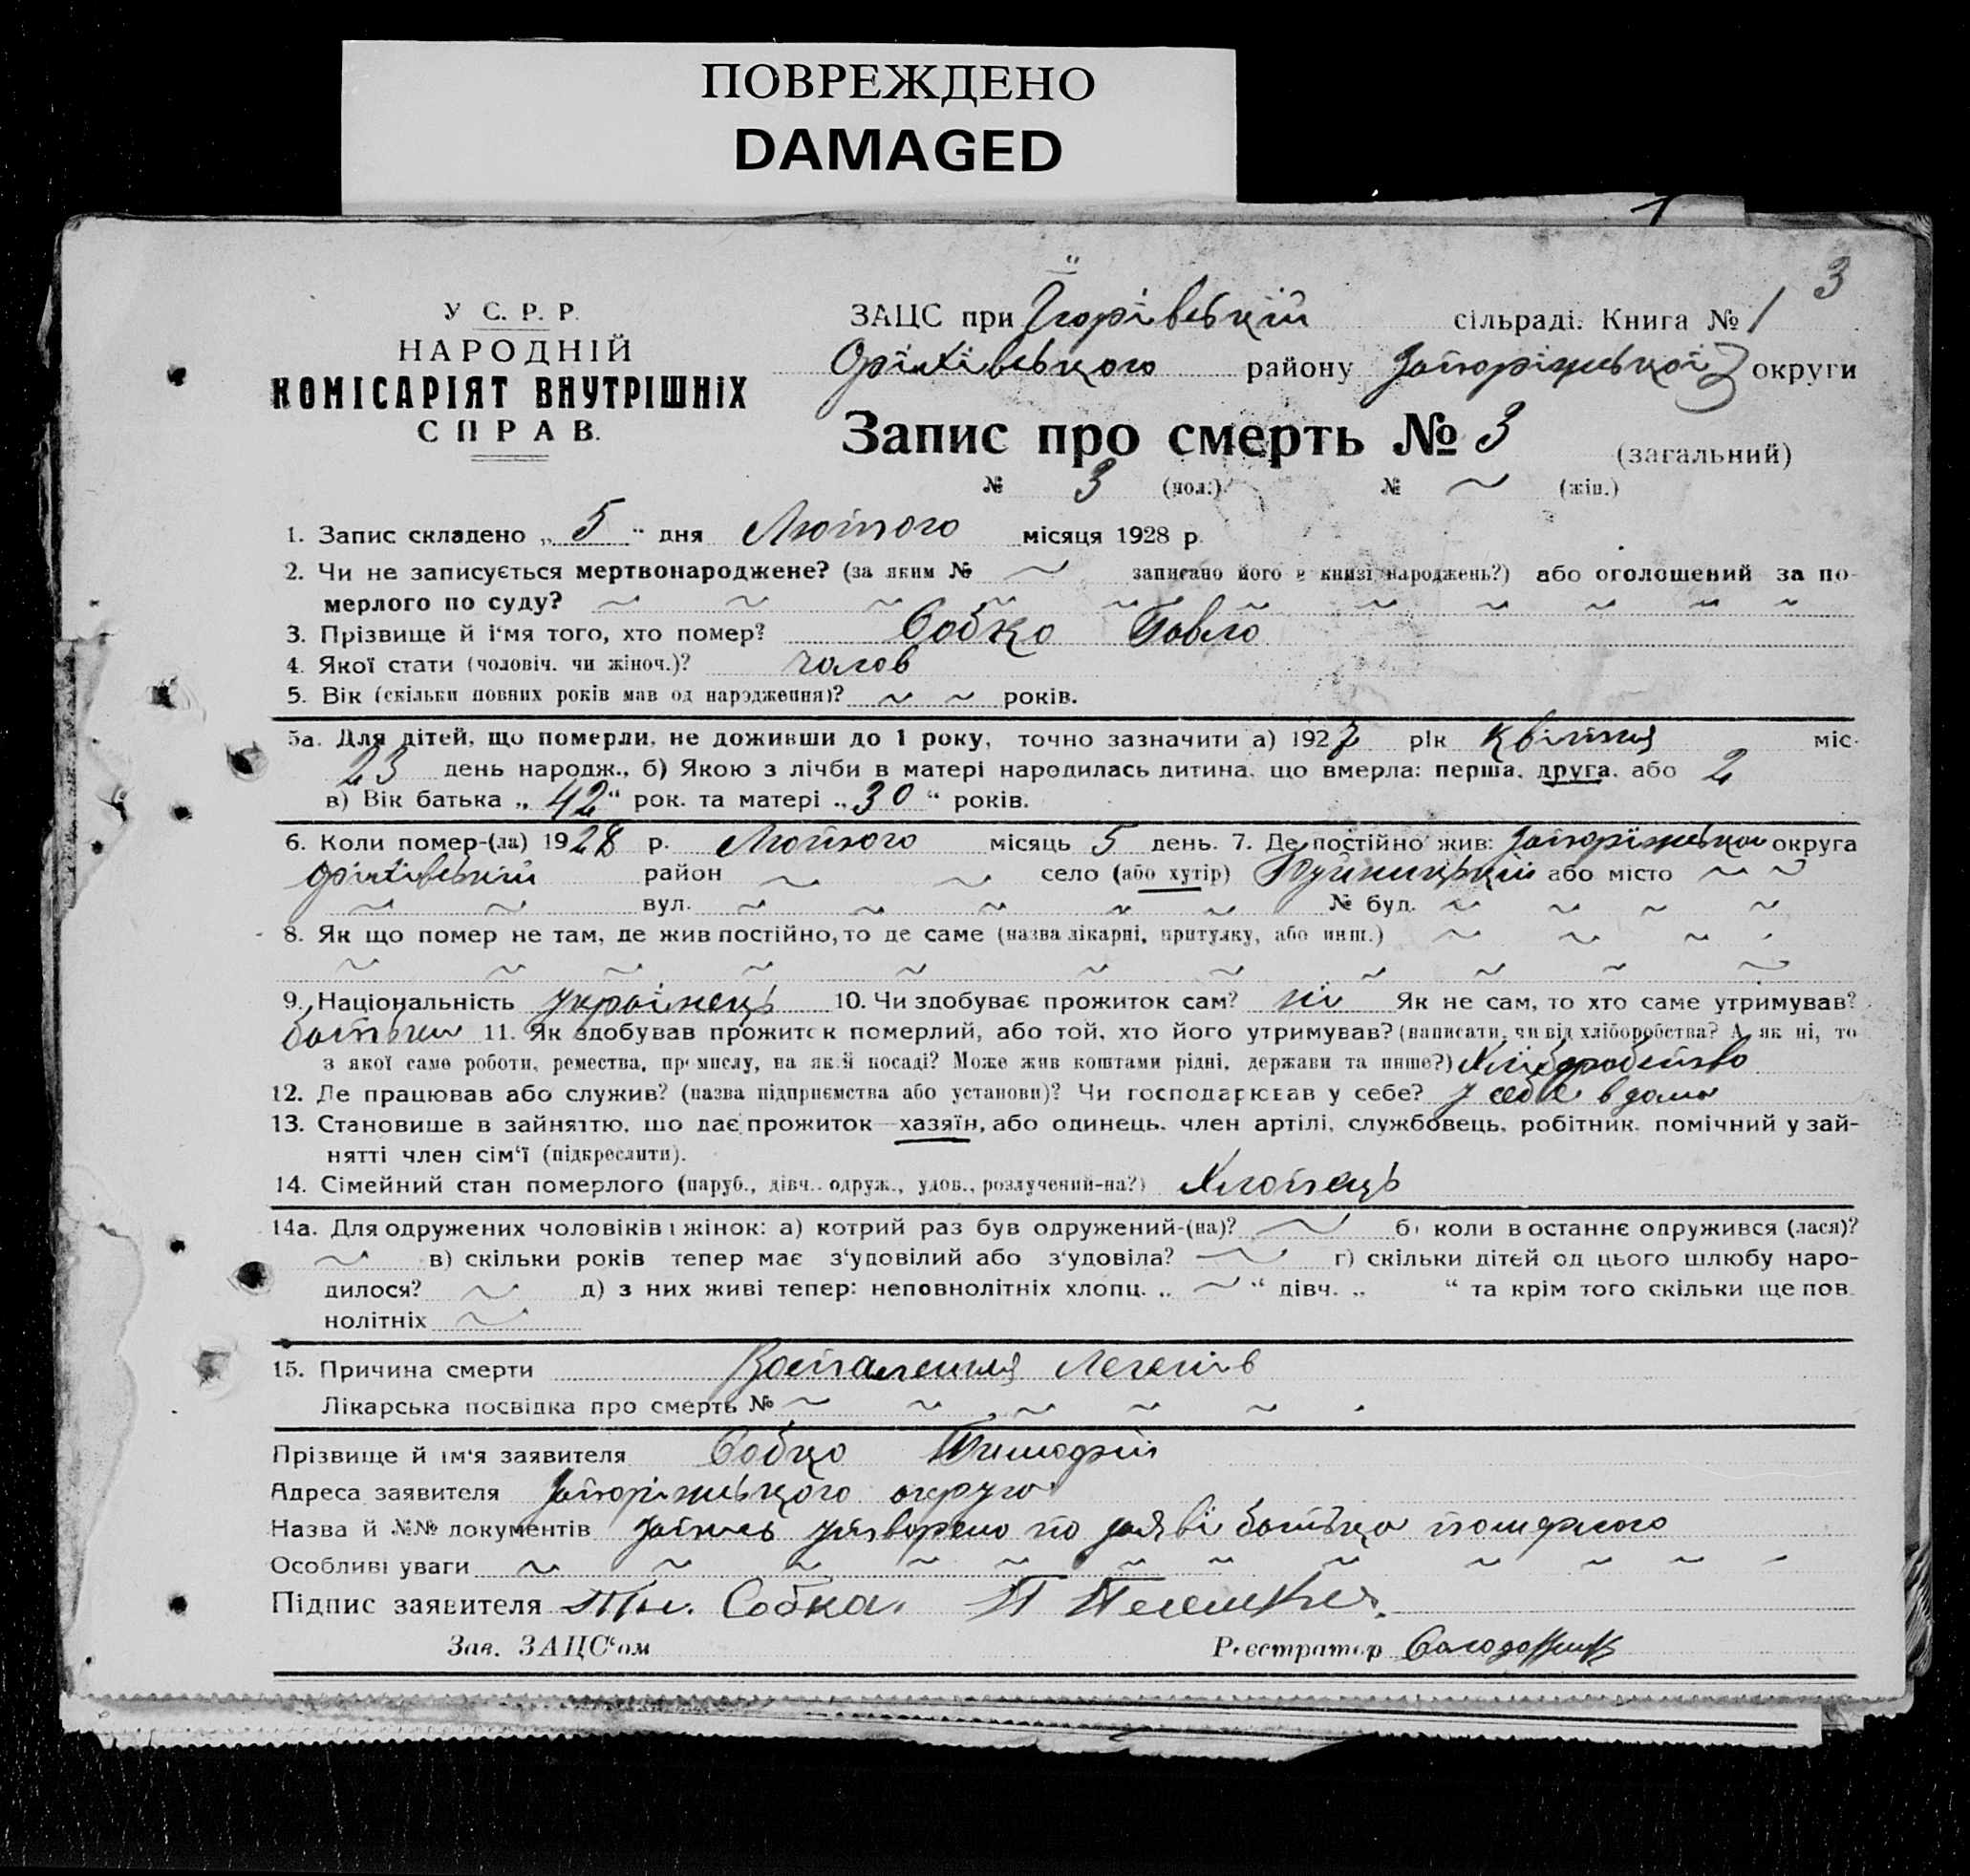 ПОВРЕЖДЕНО
DAMAGED
3
У С. Р. Р.
НАРОДНІЙ
КОМІСАРІЯТ ВНУТРІШНІХ
СПРАВ.
ЗАЦС при Ігорівській сільраді. Книга № 1
Оріхівського району Запоріжської округи
Запис про смерть № 3 (загальний)
№ 3 (чол.) № ~ (жін.)
1. Запис складено „ 5 " дня Лютого місяця 1928 р.
2. Чи не записується мертвонароджене? (за яким № ~ записано його в книзі народжень?) або оголошений за по-
мерлого по суду? ~ ~ ~ ~ ~ ~ ~ ~ ~ ~ ~
3. Прізвище й і'мя того, хто помер? Собко Павло
4. Якої статі (чоловіч. чи жіноч.)? чолов
5. Вік (скільки повних років мав од народження)? ~ ~ років.
5а. Для дітей, що померли, не доживши до 1 року, точно зазначити а) 1927 рік квітня міс.
23 день народж., б) Якою з лічби в матері народилась дитина, що вмерла: перша, друга, або 2
в) Вік батька „ 42 " рок. та матері „ 30 " років.
6. Коли помер-(ла) 1928 р. Лютого місяць 5 день. 7. Де постійно жив: Запоріжська округа
Оріхівський район ~ ~ село (або хутір) або місто ~ ~
~ ~ вул. ~ ~ ~ ~ ~ № буд. ~ ~ ~ ~
8. Як що помер не там, де жив постійно, то де саме (назва лікарні, притулку, або инш.) ~ ~ ~
~ ~ ~ ~ ~ ~ ~ ~ ~ ~ ~
9. Національність українець 10. Чи здобуває прожиток сам? ні Як не сам, то хто саме утримував?
батьки 11. Як здобував прожиток померлий, або той, хто його утримував? (написати, чи від хліборобства? А як ні, то
з якої саме роботи, ремества, промислу, на якій посаді? Може жив коштами рідні, держави та инше?) Хліборобство
12. Де працював або служив? (назва підприємства або установи)? Чи господарював у себе? у себе вдома
13. Становише в зайняттю, що дає прожиток—хазяїн, або одинець, член артілі, службовець, робітник, помічний у зай-
нятті член сім'ї (підкреслити).
14. Сімейний стан померлого (паруб., дівч., одруж., удов., розлучений-на?) Хлопець
14а. Для одружених чоловіків і жінок: а) котрий раз був одружений-(на)? ~ б) коли в останнє одружився (лася)?
~ в) скільки років тепер має з'удовілий або з'удовіла? ~ г) скільки дітей од цього шлюбу наро-
дилося? ~ д) з них живі тепер: неповнолітніх хлопц. „ ~ " дівч. „ " та крім того скільки ще пов
нолітніх ~
15. Причина смерти Воспалення Легенів
Лікарська посвідка про смерть № ~ ~ ~ ~ ~
Прізвище й ім'я заявителя Собко Тимофій
Адреса заявителя Запоріжського округа
Назва й №№ документів Запись утворено по заяві батька померлого
Особливі уваги ~ ~ ~ ~ ~ ~ ~ ~ ~ ~ ~
Підпис заявителя Тим. Собка.
Зав. ЗАЦС'ом Реєстратор